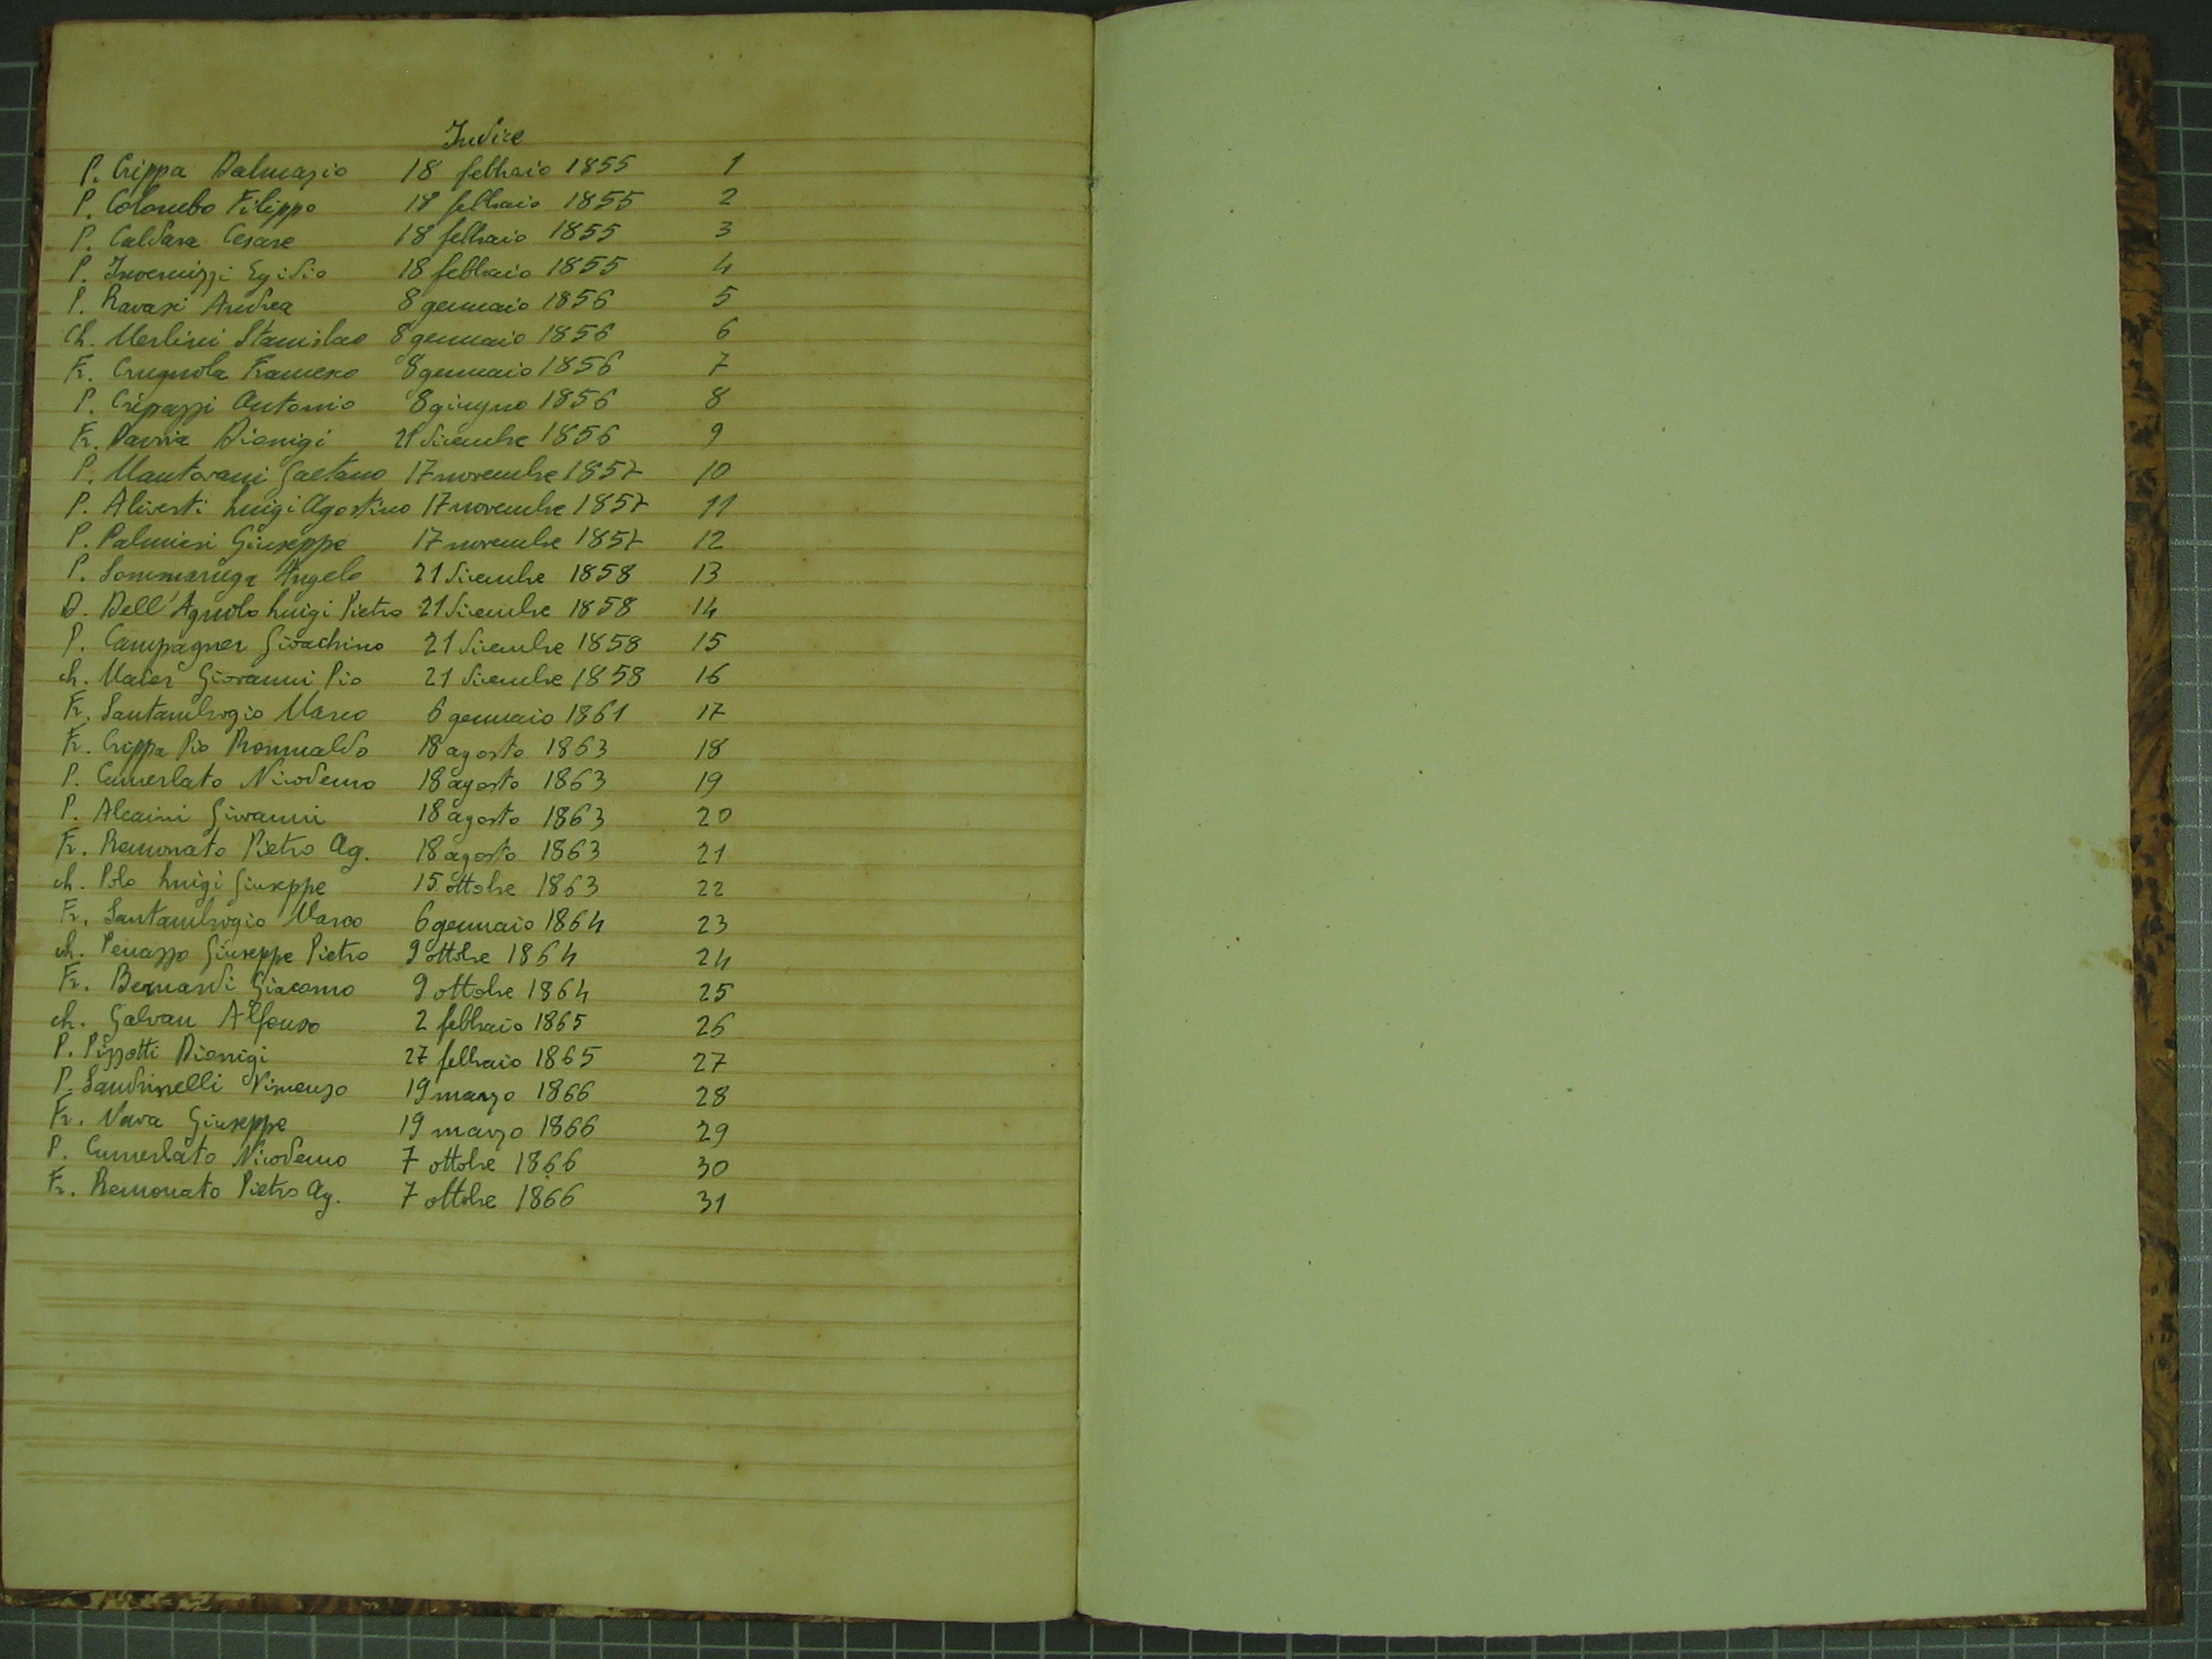 Indice
P. Crippa Dalmazio 18 febbraio 1855 1
P. Colombo Filippo 18 febbraio 1855 2
P. Caldara Cesare 18 febbraio 1855 3
P. Invernizzi Egidio 18 febbraio 1855 4
P. Ravasi Andrea 8 gennaio 1856 5
Ch. Merlini Stanislao 8 gennaio 1856 6
Fr. Crugnola Francesco 8 gennaio 1856 7
P. Cripazzi Antonio 8 giugno 1856 8
Fr. Dionigi 21 dicembre 1856 9
P. Mantovani Gaetano 17 novembre 1857 10
P. Aliverti Luigi Agostino 17 novembre 1857 11
P. Palmieri Giuseppe 17 novembre 1857 12
P. Sommaruga Angelo 21 dicembre 1858 13
D. Dell'Agnolo Luigi Pietro 21 dicembre 1858 14
P. Campagner Gioachino 21 dicembre 1858 15
ch. Maier Giovanni Pio 21 dicembre 1858 16
Fr. Santambrogio Marco 6 gennaio 1861 17
Fr. Crippa Pio Romualdo 18 agosto 1863 18
P. Cumerlato Nicodemo 18 agosto 1863 19
P. Alcaini Giovanni 18 agosto 1863 20
Fr. Remonato Pietro Ag. 18 agosto 1863 21
ch. Polo Luigi Giuseppe 15 ottobre 1863 22
Fr. Santambrogio Marco 6 gennaio 1864 23
ch. Penazzo Giuseppe Pietro 9 ottobre 1864 24
Fr. Bernardi Giacomo 9 ottobre 1864 25
ch. Galvan Alfonso 2 febbraio 1865 26
P. Pizzotti Dionigi 27 febbraio 1865 27
P. Sandrinelli Vincenzo 19 marzo 1866 28
Fr. Nava Giuseppe 19 marzo 1866 29
P. Cumerlato Nicodemo 7 ottobre 1866 30
Fr. Remonato Pietro Ag. 7 ottobre 1866 31